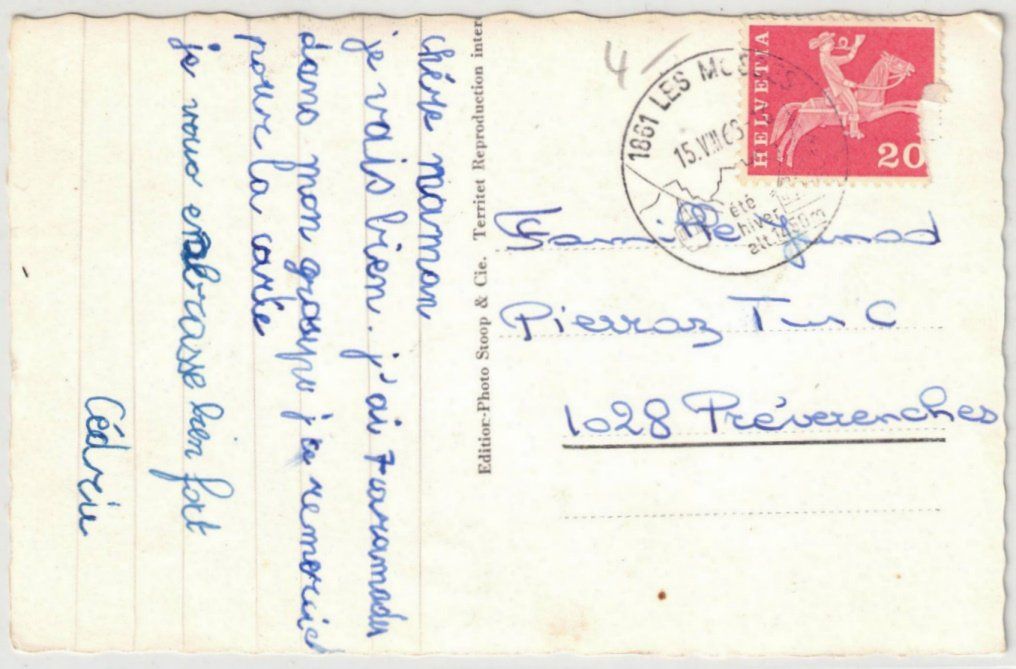 chère maman
je vais bien. j'ai 7 caramades
dans mon groupe je remercie
pour la carte
je vous enbrasse bien fort
Cédric
Editior-Photo Stoop & Cie. Territet Reproduction inter
4
1861 LES MOSSES
15.VIII.68
été
hiver
alt. 1450m
HELVETIA
20
Famille Junod
Pierraz Tus C
1028 Préverenches